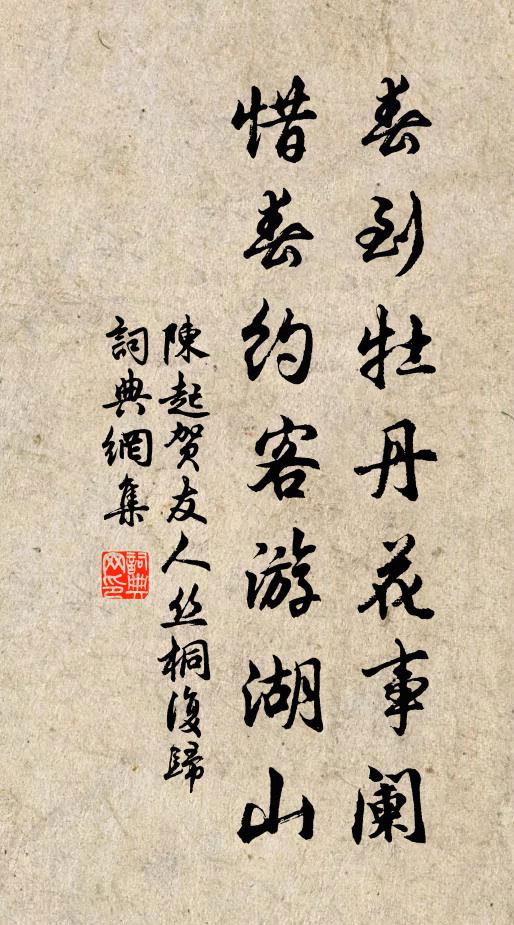 春到牡丹花事阑
惜春约客游湖山
陳起贺友人丝桐復歸
詞典網集
詞典网印